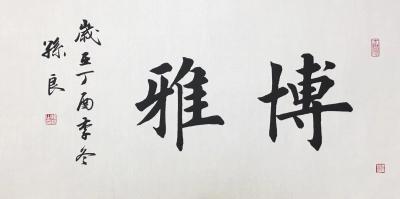 博雅
歲在丁酉季冬
孫良